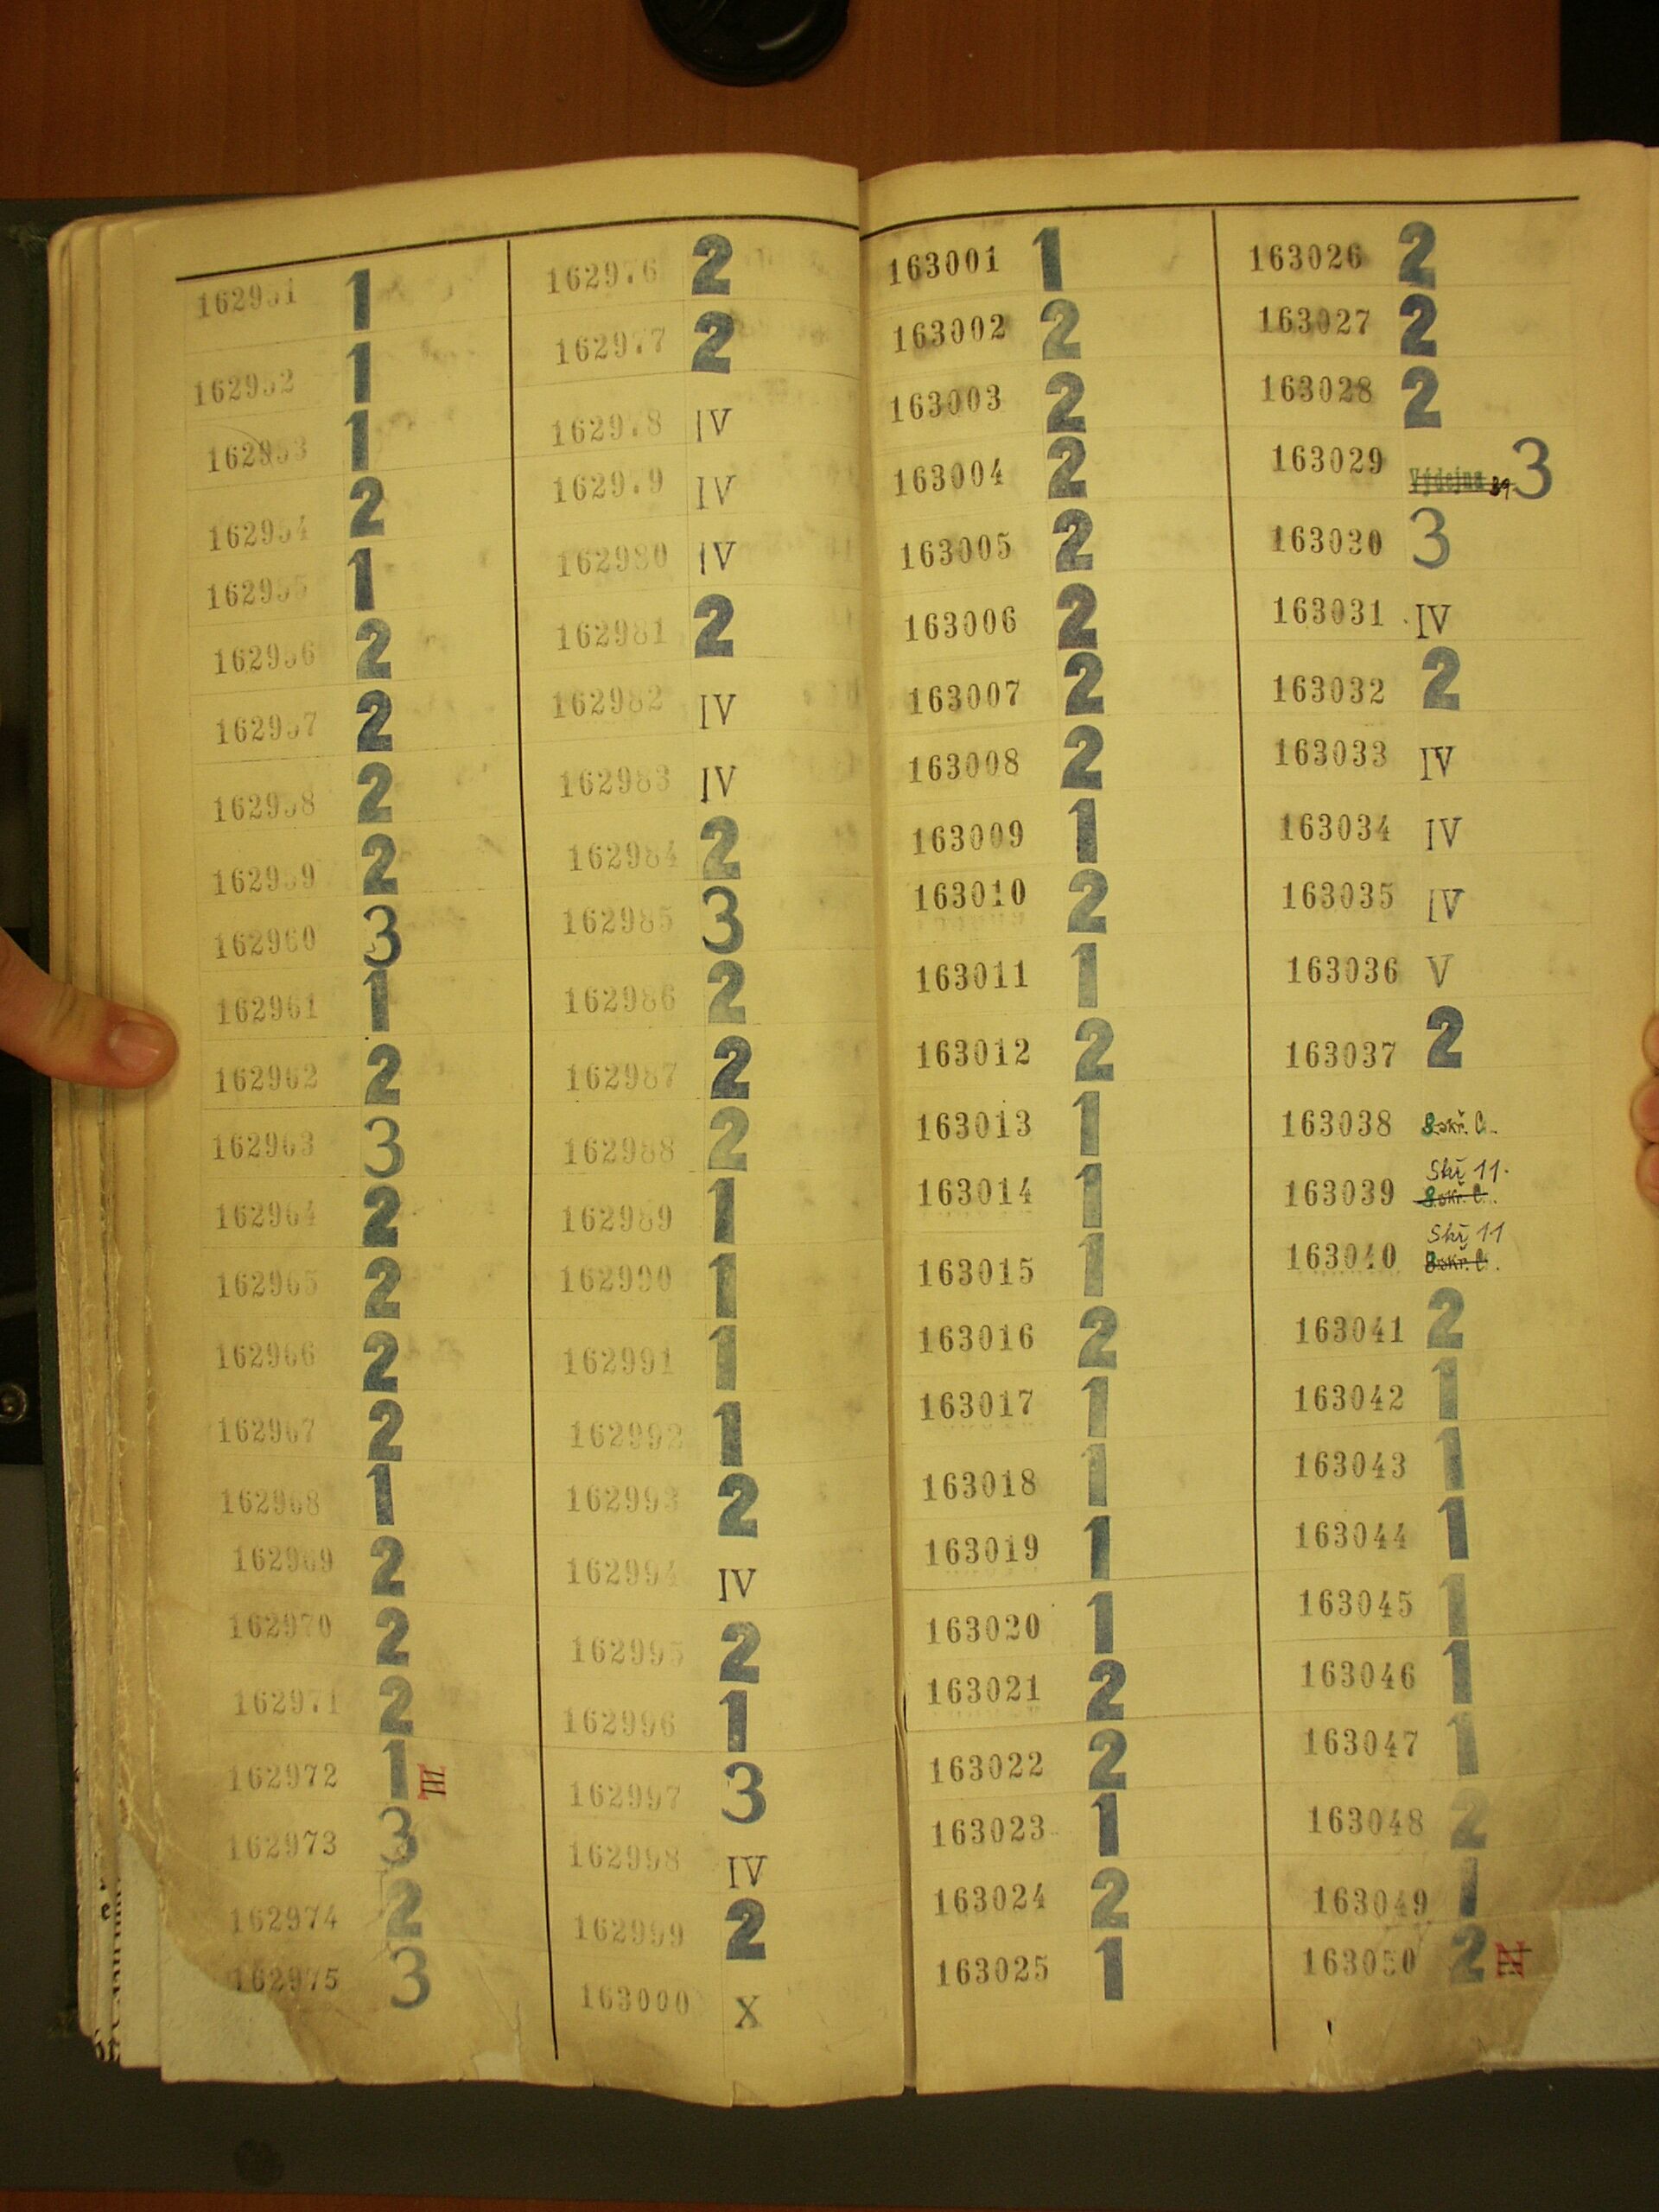 162951 1
162952 1
162953 1
162954 2
162955 1
162956 2
162957 2
162958 2
162959 2
162960 3
162961 1
162962 2
162963 3
162964 2
162965 2
162966 2
162967 2
162968 1
162969 2
162970 2
162971 2
162972 1 III
162973 3
162974 2
162975 3
162976 2
162977 2
162978 IV
162979 IV
162980 IV
162981 2
162982 IV
162983 IV
162984 2
162985 3
162986 2
162987 2
162988 2
162989 1
162990 1
162991 1
162992 1
162993 2
162994 IV
162995 2
162996 1
162997 3
162998 IV
162999 2
163000 X
163001 1
163002 2
163003 2
163004 2
163005 2
163006 2
163007 2
163008 2
163009 1
163010 2
163011 1
163012 2
163013 1
163014 1
163015 1
163016 2
163017 1
163018 1
163019 1
163020 1
163021 2
163022 2
163023 1
163024 2
163025 1
163026 2
163027 2
163028 2
163029 Výdejna 3
163030 3
163031 IV
163032 2
163033 IV
163034 IV
163035 IV
163036 V
163037 2
163038 8.skř. C.
Skř 11.
163039 8.skř. C.
Skř 11
163040 8.skř. C.
163041 2
163042 1
163043 1
163044 1
163045 1
163046 1
163047 1
163048 2
163049 1
163050 2 IV